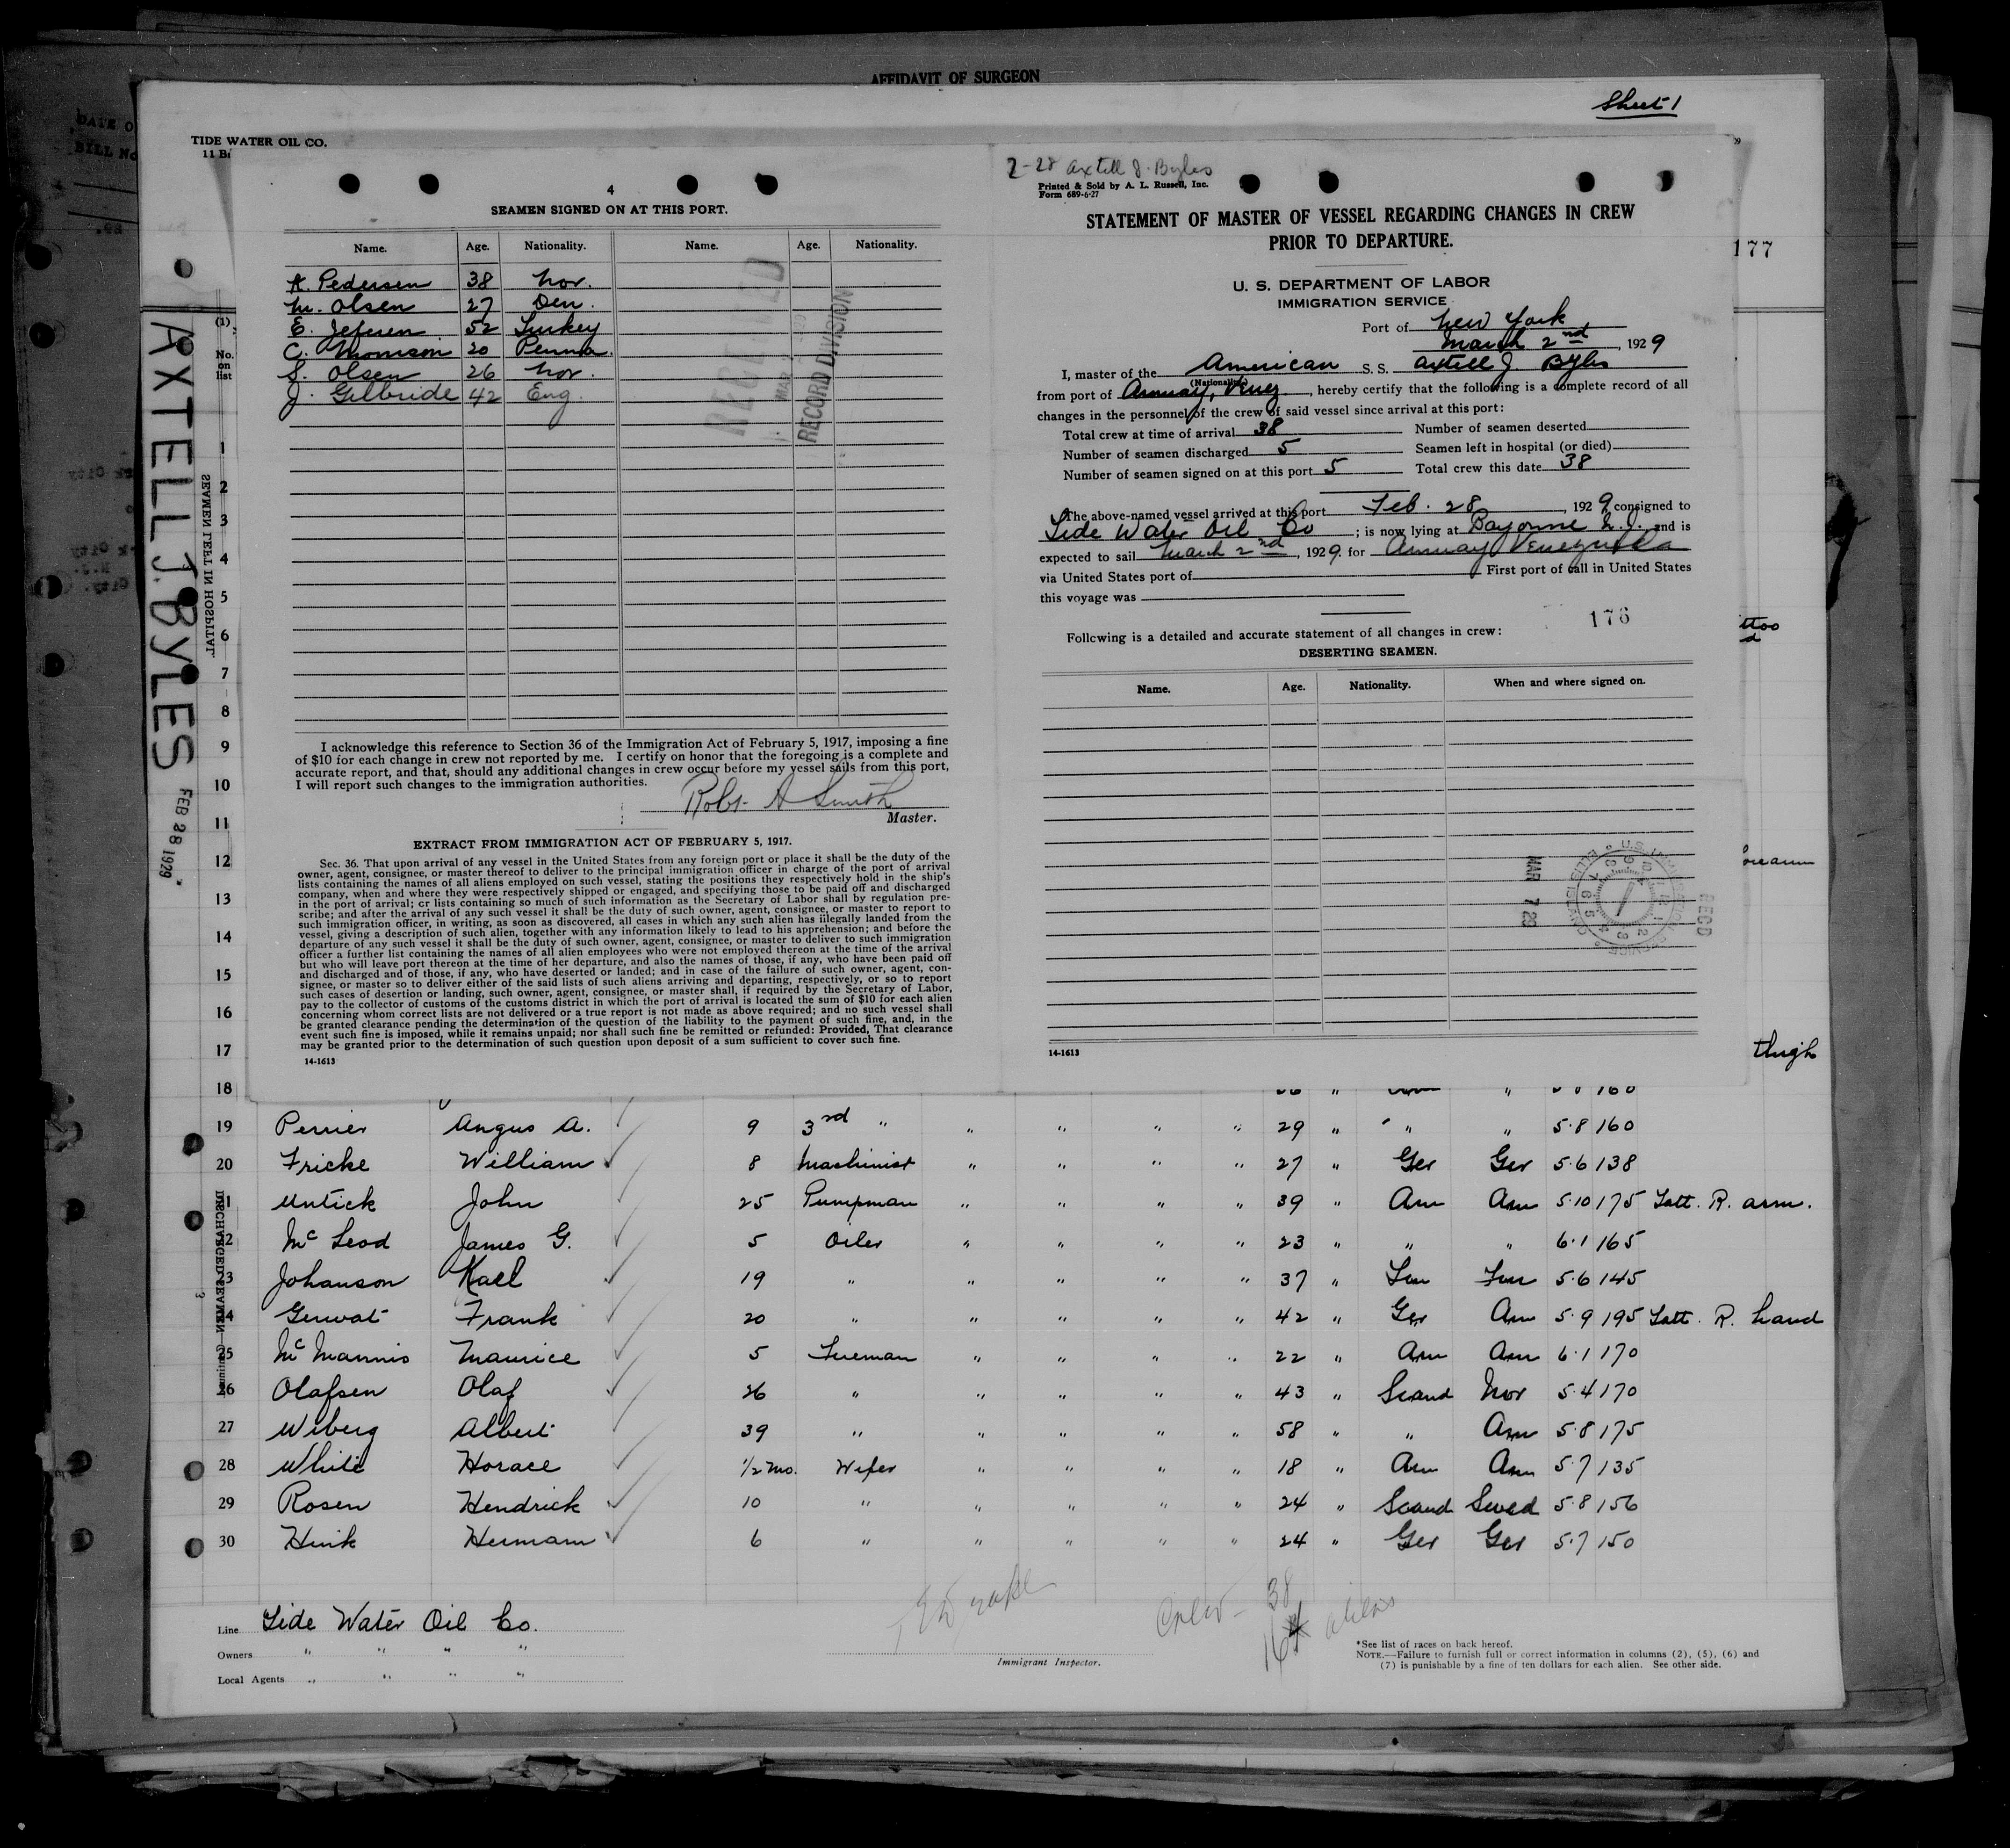 AFFIDAVIT OF SURGEON
Sheet 1
TIDE WATER OIL CO.
11 B
177
4
SEAMEN SIGNED ON AT THIS PORT.
Name. Age. Nationality. Name. Age. Nationality.
K. Pedersen 38 Nor.
M. Olsen 27 Den.
E. Jefsen 52 Turkey
C. Thomson 20 Penna.
S. Olsen 26 Nor.
J. Gilbride 42 Eng.
RECORD DIVISION
I acknowledge this reference to Section 36 of the Immigration Act of February 5, 1917, imposing a fine
of $10 for each change in crew not reported by me. I certify on honor that the foregoing is a complete and
accurate report, and that, should any additional changes in crew occur before my vessel sails from this port,
I will report such changes to the immigration authorities.
Robt A Smith
Master.
EXTRACT FROM IMMIGRATION ACT OF FEBRUARY 5, 1917.
Sec. 36. That upon arrival of any vessel in the United States from any foreign port or place it shall be the duty of the
owner, agent, consignee, or master thereof to deliver to the principal immigration officer in charge of the port of arrival
lists containing the names of all aliens employed on such vessel, stating the positions they respectively hold in the ship's
company, when and where they were respectively shipped or engaged, and specifying those to be paid off and discharged
in the port of arrival; or lists containing so much of such information as the Secretary of Labor shall by regulation pre-
scribe; and after the arrival of any such vessel it shall be the duty of such owner, agent, consignee, or master to report to
such immigration officer, in writing, as soon as discovered, all cases in which any such alien has illegally landed from the
vessel, giving a description of such alien, together with any information likely to lead to his apprehension; and before the
departure of any such vessel it shall be the duty of such owner, agent, consignee, or master to deliver to such immigration
officer a further list containing the names of all alien employees who were not employed thereon at the time of the arrival
but who will leave port thereon at the time of her departure, and also the names of those, if any, who have been paid off
and discharged and of those, if any, who have deserted or landed; and in case of the failure of such owner, agent, con-
signee, or master so to deliver either of the said lists of such aliens arriving and departing, respectively, or so to report
such cases of desertion or landing, such owner, agent, consignee, or master shall, if required by the Secretary of Labor,
pay to the collector of customs of the customs district in which the port of arrival is located the sum of $10 for each alien
concerning whom correct lists are not delivered or a true report is not made as above required; and no such vessel shall
be granted clearance pending the determination of the question of the liability to the payment of such fine, and, in the
event such fine is imposed, while it remains unpaid; nor shall such fine be remitted or refunded: Provided, That clearance
may be granted prior to the determination of such question upon deposit of a sum sufficient to cover such fine.
14-1613
2-28 Axtell J. Byles
Printed & Sold by A. L. Russell, Inc.
Form 689-6-27
STATEMENT OF MASTER OF VESSEL REGARDING CHANGES IN CREW
PRIOR TO DEPARTURE.
U. S. DEPARTMENT OF LABOR
IMMIGRATION SERVICE
Port of New York
March 2nd, 1929
I, master of the American S. S. Axtell J. Byles
(Nationality)
from port of Aruay, Venez, hereby certify that the following is a complete record of all
changes in the personnel of the crew of said vessel since arrival at this port:
Total crew at time of arrival 38 Number of seamen deserted
Number of seamen discharged 5 Seamen left in hospital (or died)
Number of seamen signed on at this port 5 Total crew this date 38
The above-named vessel arrived at this port Feb. 28, 1929 consigned to
Tide Water Oil Co; is now lying at Bayonne N.J. and is
expected to sail March 2nd, 1929 for Aruay Venezuela
via United States port of First port of call in United States
this voyage was
176
Following is a detailed and accurate statement of all changes in crew:
DESERTING SEAMEN.
Name. Age. Nationality. When and where signed on.
MAR 7 29
REC'D
14-1613
AXTELL J. BYLES FEB 28 1929
SEAMEN LEFT IN HOSPITAL
(1)
No. on list
1
2
3
4
5
6
7
8
9
10
11
12
13
14
15
16
17 thigh
18 " " 160
19 Perrier Angus A. 9 3rd " " " " " 29 " " " 5.8 160
20 Fricke William 8 Machinist " " " " 27 " Ger Ger 5.6 138
21 Untick John 25 Pumpman " " " " 39 " Am Am 5.10 175 Tatt. R. arm.
22 McLeod James G. 5 Oiler " " " " 23 " " " 6.1 165
23 Johanson Karl 19 " " " " " 37 " Finn Finn 5.6 145
24 Gerwat Frank 20 " " " " " 42 " Ger Am 5.9 195 Tatt. R. hand
25 McMannis Maurice 5 Fireman " " " " 22 " Am Am 6.1 170
26 Olafsen Olaf 26 " " " " " 43 " Scand Nor 5.4 170
27 Wiberg Albert 39 " " " " " 58 " " Am 5.8 175
28 White Horace 1/2 mo. Wiper " " " " 18 " Am Am 5.7 135
29 Rosen Hendrick 10 " " " " " 24 " Scand Swed 5.8 156
30 Hink Herman 6 " " " " " 24 " Ger Ger 5.7 150
Crew - 38
16 aliens
Line Tide Water Oil Co.
Owners " " " "
Local Agents " " " "
Immigrant Inspector.
*See list of races on back hereof.
NOTE.—Failure to furnish full or correct information in columns (2), (5), (6) and
(7) is punishable by a fine of ten dollars for each alien. See other side.